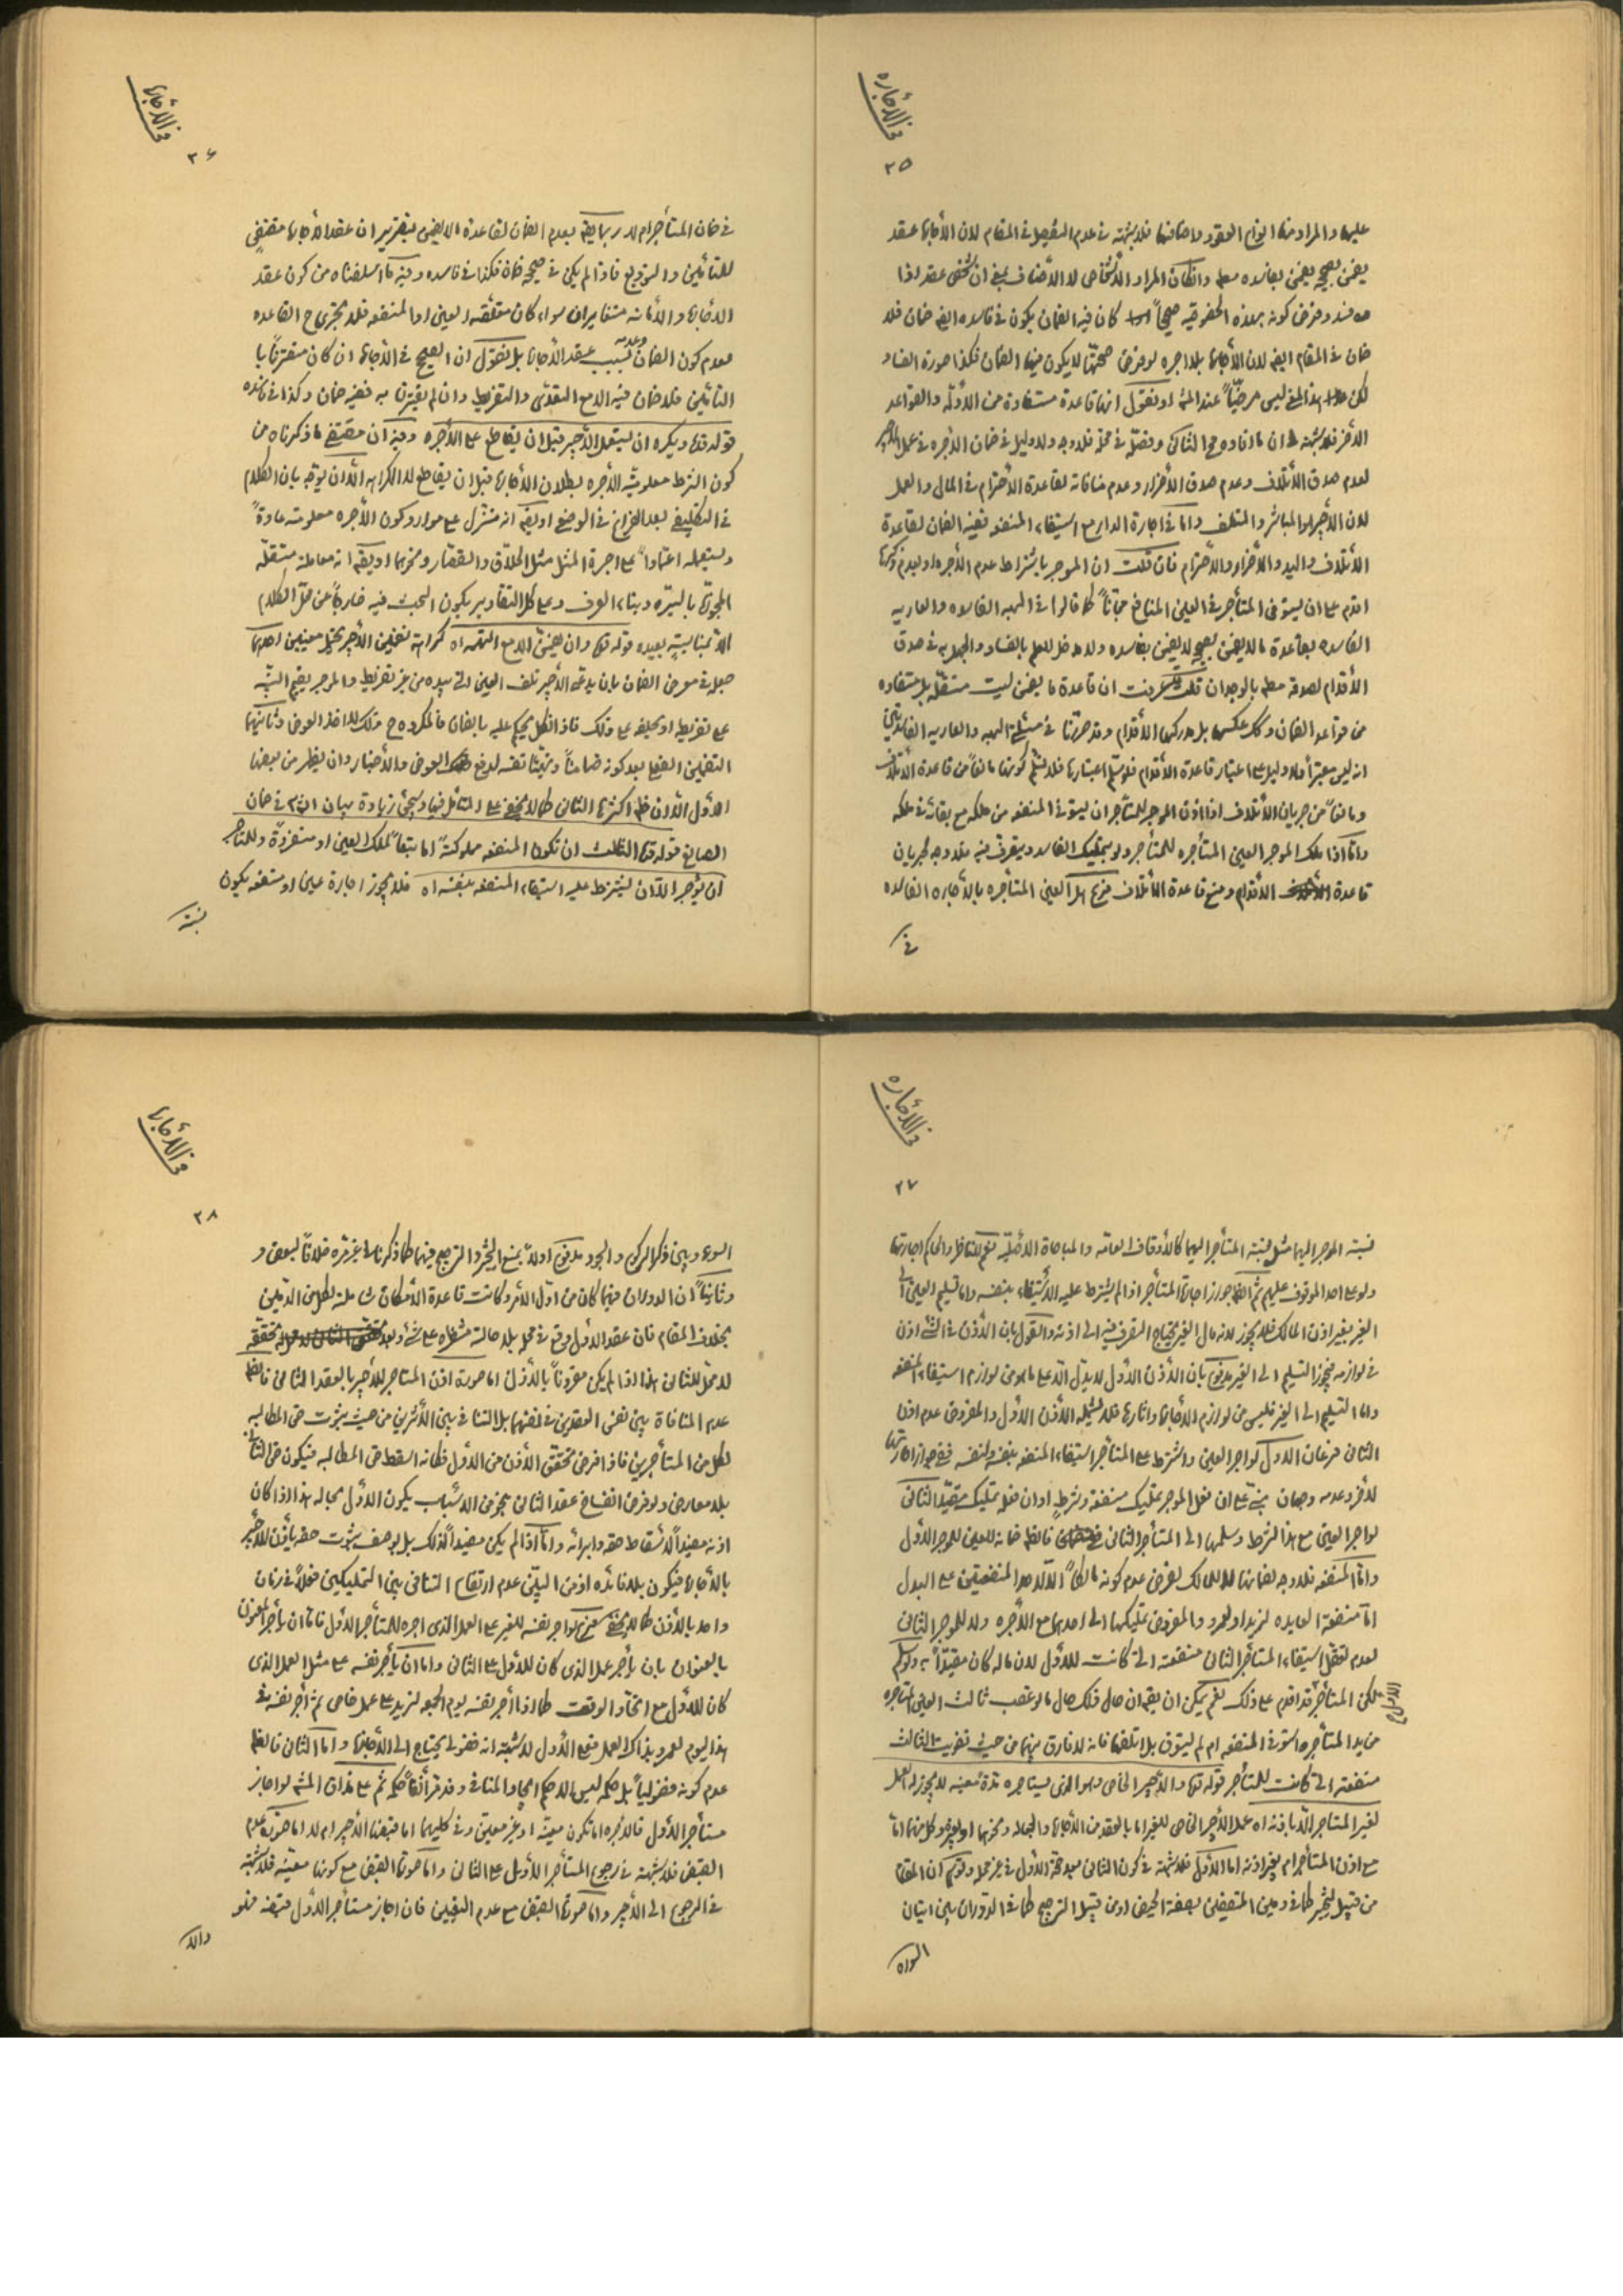 في الأجاره
٢٥
عليها والمراد منها انواع العقود واصنافها فلا شبهة في عدم التفصيل في المقام لان الأجارة عقد
يضمن بصحيحه فيضمن بفاسده مطلقا وانكان المراد الأشخاص لا الأصناف بمعنى ان كل شخص عقد اذا
فسد وفرض كونه بهذه الخصوصية صحيحاً كان فيه الضمان يكون في فاسده ايضا ضمان فلا
ضمان في المقام ايضا لان الأجارة بلا اجره لو فرض صحتها لا يكون فيها الضمان فكذا صورة الفساد
لكن هذا المعنى ليس مرضيّاً عند المشهور او نقول انها قاعدة مستفادة من الأدلة والقواعد
الأخر فلا شبهة ان ما افاده المحقق الثاني وفصّله في محله فلا وجه ولا دليل في ضمان الأجره في عمل الأجير
لعدم صدق الأتلاف وعدم صدق الأضرار وعدم منافاته لقاعدة الأحترام في المال والعمل
لان الأجير هو المباشر والمتلف واما في اجارة الدار مع استيفاء المنفعه ففيه الضمان لقاعدة
الأتلاف واليد والأضرار والأحترام فان قلت ان الموجر باشتراط عدم الأجره او بعدم ذكرها
اقدم على ان يستوفى المستأجر في العين المنافع مجّاناً كما قالوا في الهبه الفاسده والعاريه
الفاسده بقاعدة ما لا يضمن بصحيحه لا يضمن بفاسده ولا مدخل للعلم بالفساد والجهل به في صدق
الأقدام لصدقه مطلقا بالوجدان قلت عرفت ان قاعدة ما يضمن ليست مستقلّه بل مستفاده
من قواعد الضمان وكك عكسها بل مدركها الأقدام وقد صرحنا في مسئلة الهبه والعاريه الفاسدتين
انه ليس معتبراً ولا دليل على اعتبار قاعدة الأقدام فلو سلم اعتبارها فلا نسلم كونها مانعاً من قاعدة الأتلاف
ومانعاً من جريان الأتلاف اذا اذن الموجر للمستأجر ان يستوفي المنفعه من ملكه مع بقائه في ملكه
وامّا اذا ملك الموجر العين المستأجره للمستأجر ولو بتمليك الفاسد ويتصرف فيه فلا وجه لجريان
قاعدة الأقدام ومنع قاعدة الأتلاف فرع هل العين المستأجره بالأجاره الفاسده
في
في الأجارة
٢۶
في ضمان المستأجر ام لا ربما يقم بعدم الضمان لقاعدة ما لا يضمن بتقرير ان عقد الأجارة مقتضٍ
للتأمين والتوزيع فاذا لم يكن في صحيحه ضمان فكذا في فاسده وفيه ما اسلفناه من كون عقد
الأجارة والأمانة متغايران سواء كان متعلقه العين او المنفعه فلا تجري ح القاعده
لعدم كون الضمان وعدمه بسبب عقد الأجارة بل نقول ان الصحيح في الأجارة ان كان مقترناً با
التأمين فلا ضمان فيه الا مع التعدّى والتفريط وان لم يقترن به ففيه ضمان وكذا في فاسده
قوله قده ويكره ان يستعمل الأجير قبل ان يقاطع على الأجره وفيه ان مقتضى ما ذكرناه من
كون الشرط معلومية الأجره بطلان الأجارة قبل ان يقاطع لا الكراهه الّا ان يوجّه بان الكلام
في التكليف بعد الفراغ في الوضع او يقم انه منزّل على موارد كون الأجره معلومته عادةً
ويستعمله اعتماداً على اجرة المثل مثل الحلّاق والقصّار ونحوهما او يقم انه معاملة مستقلّه
المجوزة بالسيره وبناء العرف وعلى كل التقادير يكون البحث فيه خارجاً عن محلّ الكلام
الا بمناسبةٍ بعيده قوله قده وان يضمن الا مع التهمه اه كراهة تضمين الأجير يحتمل معنيين احدهما
جعله في معرض الضمان بان يدعى الأجير تلف العين في يده من غير تفريط والموجر يقيم البيّنه
على تفريطه او يحلفه على ذلك فاذا نكل يحكم عليه بالضمان فالمكروه ح ذلك لا اخذ العوض وثانيهما
التضمين الفعلى بعد كونه ضامناً وتهيّئا نفسه لدفع العوض والأخبار وان يظهر من بعضها
الأول الّا ان ظهر اكثرها الثاني كما لا يخفى على المتأمل فيها وسيجئ زيادة بيان انش في ضمان
الصانع قوله قده الثالث ان تكون المنفعه مملوكةً امّا تبعاً لملك العين او منفردةً وللمستأجر
ان يؤجر الّا ان يشترط عليه استيفاء المنفعه بنفسه اه فلا يجوز اجارة عين او منفعه يكون
نسبة
في الأجاره
٢٧
نسبة الموجر اليها مثل نسبة المستأجر اليها كالأوقاف العامّه والمباحاة الأصليّه نعم للناظر والحاكم اجارتها
ولو على احد الموقوف عليهم ثم انظم جواز اجارة المستأجر اذا لم يشترط عليه الأستيفاء بنفسه واما تسليم العين الى
الغير بغير اذن المالك فلا يجوز لانه مال الغير يحتاج التصرف فيه الى اذنه والقول بان الأذن في الشئ اذن
في لوازمه فيجوز التسليم الى الغير مدفوع بان الأذن الأول لا يدّل الّا على ما هو من لوازم استيفاء المنفعه
واما التسليم الى الغير فليس من لوازم الأجارة واثارها فلا يشمله الأذن الأول والمفروض عدم اذن
الثاني فرعان الأول لو اجر العين واشترط على المستأجر استيفاء المنفعه بنفسه ولنفسه ففي جواز اجارتها
لأخر وعدمه وجهان مبنى على ان فعل الموجر تمليك منفعة وشرط او ان فعله تمليك مقيّد الثاني
لو اجر العين مع هذا الشرط وسلمها الى المستأجر الثاني فالظم ضمانه للعين للموجر الأول
وامّا المنفعه فلا وجه لضمانها للمالك لفرض عدم كونه مالكاً الّا لاحد المنفعتين على البدل
امّا منفعة العايده لزيد او لعمرو والمفروض تمليكها الى احدهما مع الأجره ولا للموجر الثاني
لعدم تعقل استيفاء المستأجر الثاني منفعته التي كانت للأوّل لان ماله كان مقيّداً ولو سلم
لكن المستأجر قد اقدم على ذلك نعم يمكن ان يقم ان حال ذلك حال ما لو غصب ثالث العين المستأجره
من يد المستأجر واستوفى المنفعه ام لم يستوف بل اتلفها فانه لا فارق بينهما من حيث تفويت الثالث
منفعته التي كانت للمستأجر قوله قده والأجير الخاص وهو الذى يستاجره مدّة معيّنه لا يجوز له العمل
لغير المستاجر الّا باذنه اه عمل الأجير الخاص للغير اما بالعقد من الأجارة والجعاله ونحوهما او بغيره وكل منهما امّا
مع اذن المستأجر ام بغير اذنه اما الأول فلا شبهة في كون الثاني بعد صحة الأول في غير محله وتوهّم ان المقام
من قبيل التخيير كما في دمين المتصفين بصفة الحيض او من قبيل الترجيح كما في الدوران بين اتيان
السواه
في الأجارة
٢٨
السوء وبين ذكر الركوع والسجود مدفوع اولاً بمنع التخيير والترجيح فيهما كما ذكرناه في غير مره خلافاً لبعض و
وثانياً ان الدوران فيهما كان من اوّل الأمر وكانت قاعدة الأمكان شاملة لكل من الدّمين
بخلاف المقام فان عقد الأول وقع في محله بلا حالة منتظره على شئ وبعد تحققه
لا محل للثانى هذا اذا لم يكن مقروناً بالأذن اما صورة اذن المستاجر للأجير بالعقد الثاني فالظم
عدم المنافاة بين نفس العقدين في نفسهما بل التنافي بين الأثرين من حيث ثبوت حق المطالبه
لكل من المستأجرين فاذا فرض تحقق الأذن من الأول فكانه اسقط حق المطالبه فيكون حق الثاني
بلا معارض ولو فرض انفساخ عقد الثاني بنحو من الأسباب يكون الأوّل بحاله هذا اذا كان
اذنه مفيداً لأسقاط حقه وابرائه وامّا اذا لم يكن مفيداً لذلك بل بوصف ثبوت حقه يأذن للأجير
بالأجارة فيكون بلا فائده اذ من البيّن عدم ارتفاع التنافى بين التمليكين فعلاً في زمان
واحد بالأذن كما لا يخفى فرع لو اجر نفسه للغير على العمل الذى اجره للمستأجر الأول فاما ان يأجر المعنون
بالعنوان بان يأجر عمل الذى كان للأول على الثاني واما ان يأجر نفسه على مثل العمل الذى
كان للأول مع اتحاد الوقت كما اذا أجر نفسه يوم الجمعه لزيد على عمل خاص ثم أجر نفسه في
هذا اليوم لعمرو بذاك العمل فعلى الأول لا شبهة انه فضولي يحتاج الى الأجازة واما الثاني فالظم
عدم كونه فضولياً بل حكمه ليس الا حكم ايجاد المنافي وقد مر آنفاً حكمه ثم على مذاق المشهور لو اجاز
مستأجر الأول فالأجره اما تكون معيّنة او غير معيّن وفي كليهما اما قبضها الأجير ام لا اما صورة عدم
القبض فلا شبهة في رجوع المستأجر الأول على الثاني واما صورة القبض مع كونها معيّنه فلا شبهة
في الرجوع الى الأجير واما صورة القبض مع عدم التعيين فان اجاز مستأجر الأول قبضه فهو
والّا